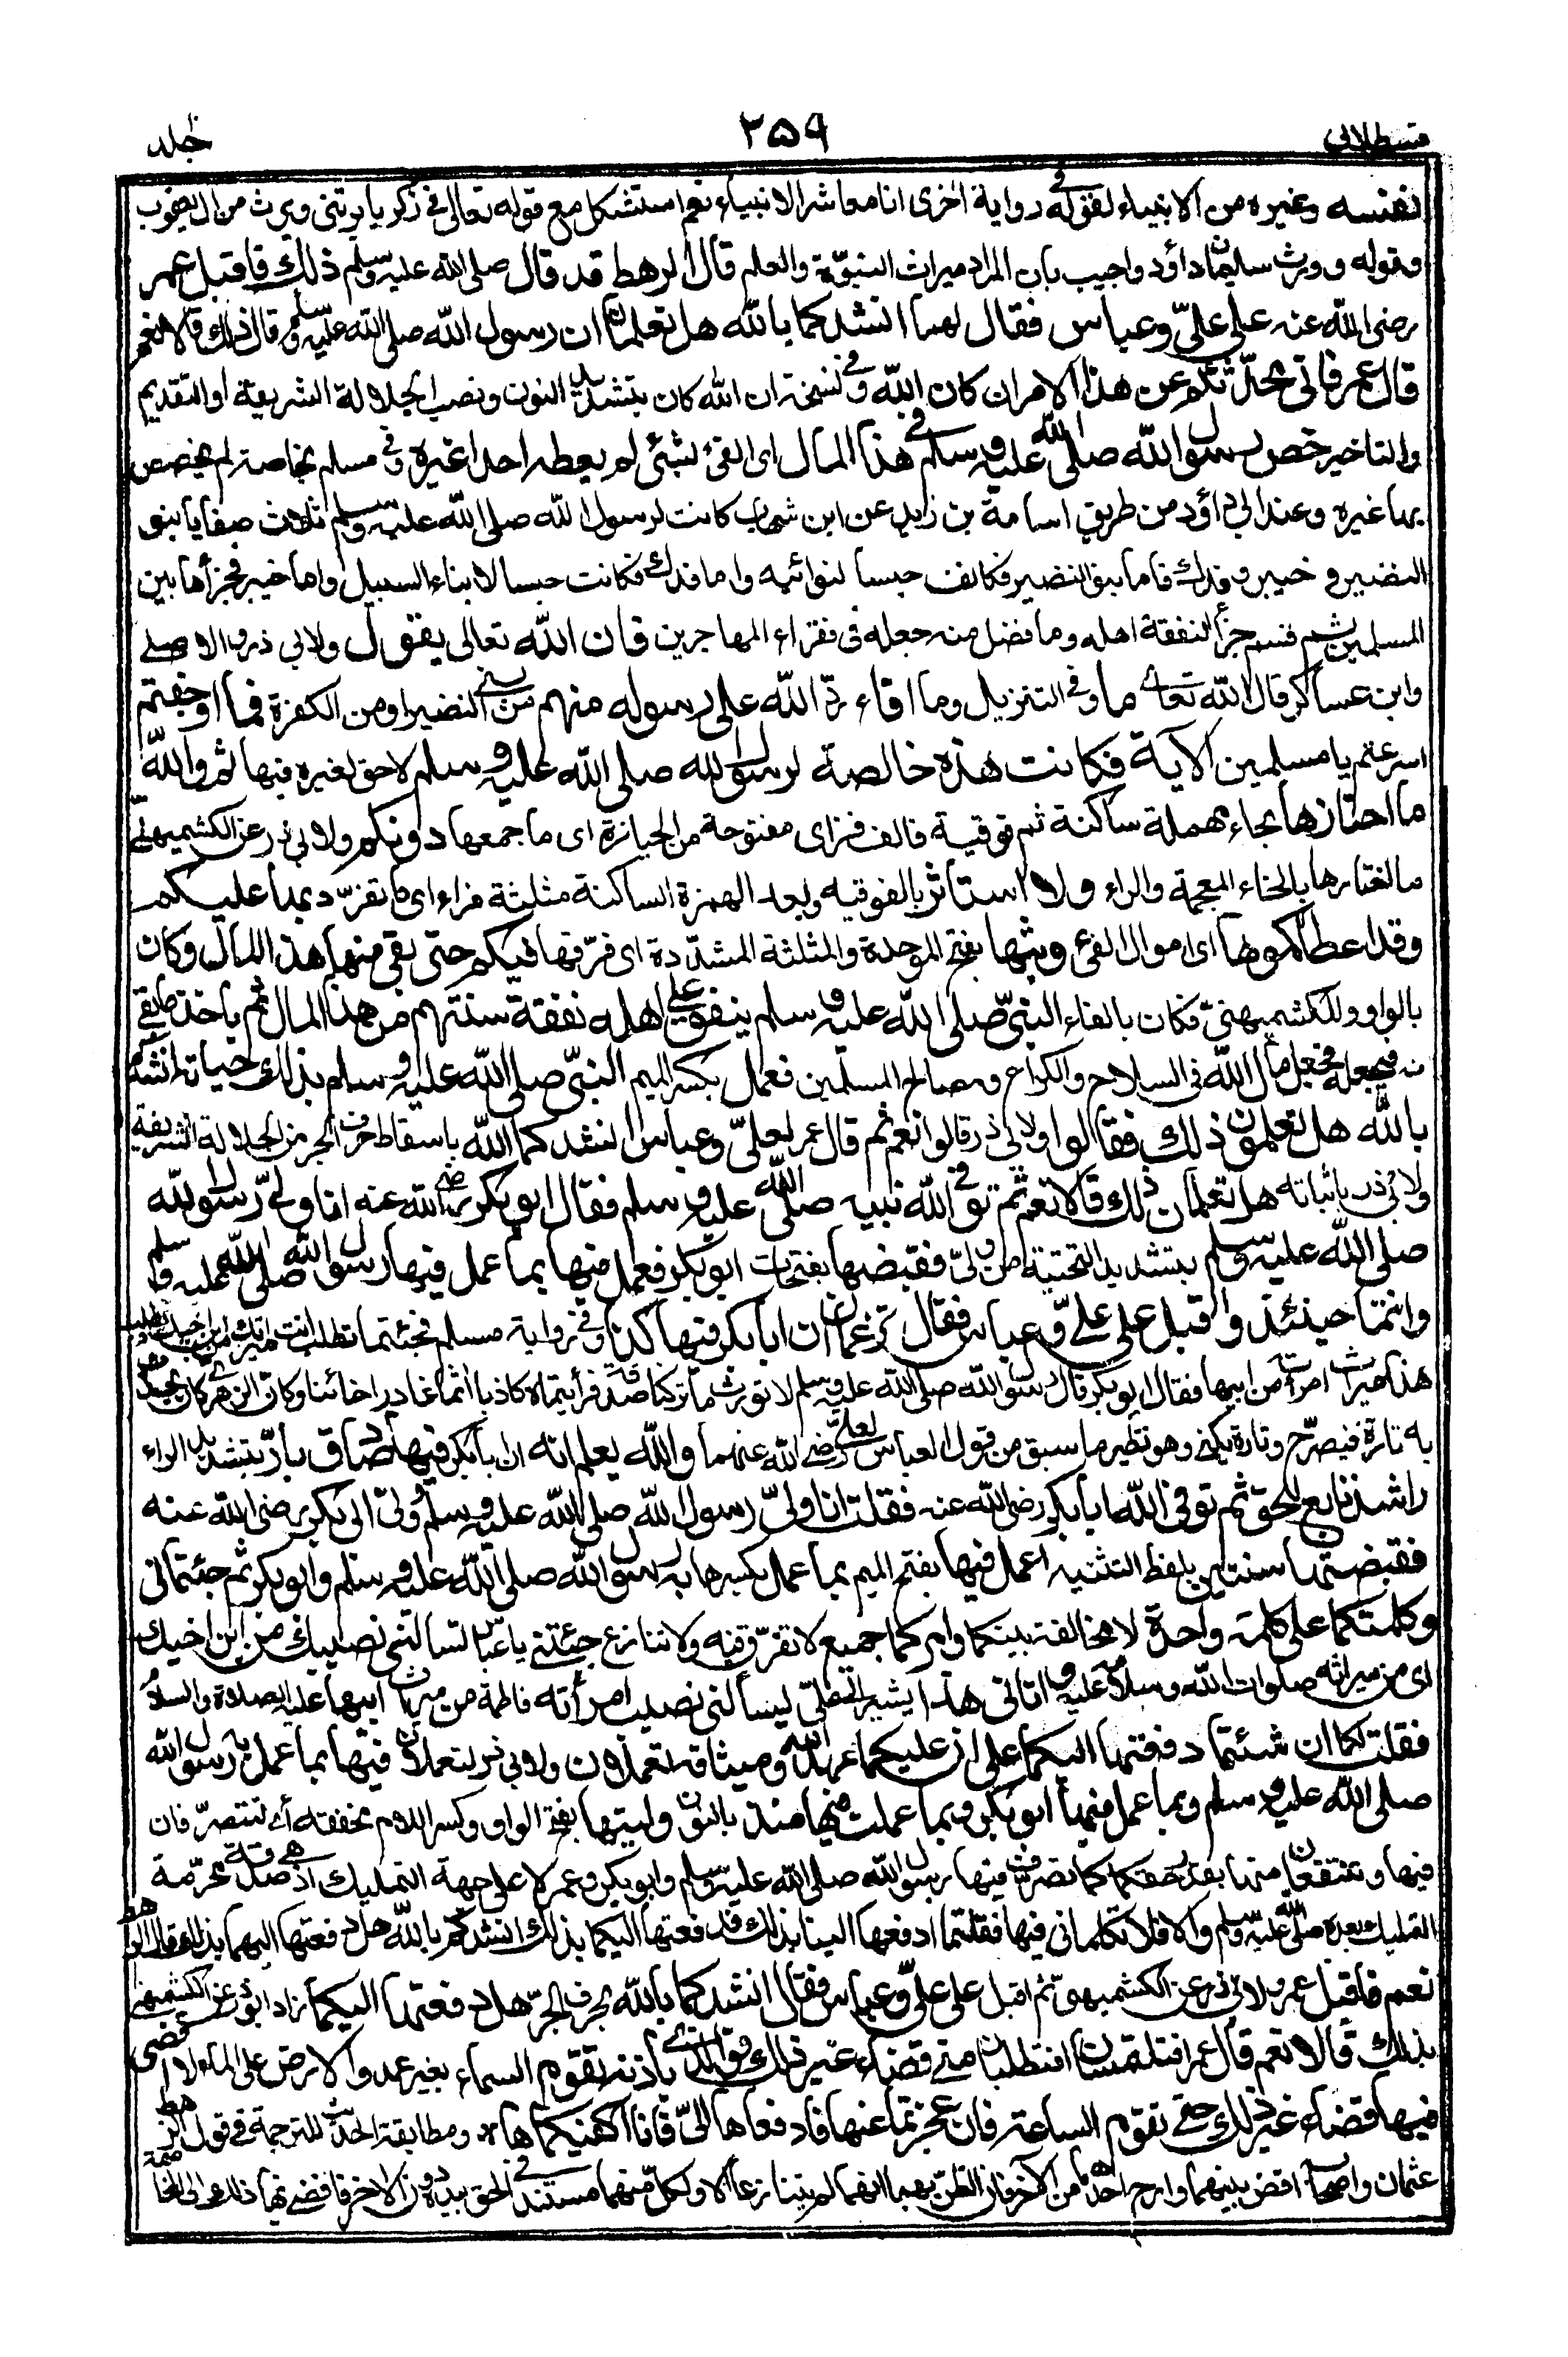 قسطلاني ٢٥٩ جلد
نفسه وغيره من الانبياء لقوله في رواية اخرى انا معاشر الانبياء نعم استشكل مع قوله تعالى في زكريا يرثني ويرث من ال يعقوب
وقوله وورث سليمان داؤد واجيب بان المراد ميراث النبوة والعلم قال الرهط قد قال صلى الله عليه وسلم ذلك فاقبل عمر
رضي الله عنه على عليّ وعباس فقال لهما انشدكما بالله هل تعلمان ان رسول الله صلى الله عليه وسلم قال ذلك قالا نعم
قال عمر فاني محدّثكم عن هذا الامر ان كان الله وفي نسخة ان الله كان بتشديد النون ونصب الجلالة الشريفة او التقديم
والتاخير خص رسول الله صلى الله عليه وسلم في هذا المال اي الفئ بشئ لم يعطه احدا غيره وفي مسلم بخاصة لم يخصص
بها غيره وعند ابي داؤد من طريق اسامة بن زيد عن ابن شهاب كانت لرسول الله صلى الله عليه وسلم ثلاث صفايا بنو
النضير و خيبر و فدك فاما بنو النضير فكانت حبسا لنوائبه واما فدك فكانت حبسا لابناء السبيل واما خيبر فجزأها بين
المسلمين ثم قسم جزأ لنفقة اهله وما فضل منه جعله في فقراء المهاجرين فان الله تعالى يقول ولابي ذر والاصيلي
وابن عساكر قال الله تعالى ما وفي التنزيل وما افاء ردّ الله على رسوله منهم من بني النضير او من الكفرة فما اوجفتم
اسرعتم يا مسلمين الآية فكانت هذه خالصة لرسول الله صلى الله عليه وسلم لا حق لغيره فيها ثم والله
ما احتازها بحاء مهملة ساكنة ثم فوقية فالف فزاي مفتوحة من الحيازة اي ما جمعها دونكم ولابي ذر عن الكشميهني
ما اختارها بالخاء المعجمة والراء ولا استأثر بالفوقيه وبعد الهمزة الساكنة مثلثة فراء اي ما تفرّد بها عليكم
وقد اعطاكموها اي اموال الفئ وبثها بفتح الموحدة والمثلثة المشدّدة اي فرّقها فيكم حتى بقي منها هذا المال وكان
بالواو وللكشميهنيّ فكان بالفاء النبيّ صلى الله عليه وسلم ينفق على اهله نفقة سنتهم من هذا المال ثم ياخذ ما بقي
منه فيجعله مجعل مال الله في السلاح والكراع ومصالح المسلمين فعمل بكسر الميم النبيّ صلى الله عليه وسلم بذلك حياته انشدكم
بالله هل تعلمون ذلك فقالوا ولابي ذر قالوا نعم ثم قال عمر لعليّ وعباس انشدكما الله باسقاط حرف الجر من الجلالة الشريفة
ولابي ذر باثباته هل تعلمان ذلك قالا نعم ثم توفى الله نبيه صلى الله عليه وسلم فقال ابو بكر رضي الله عنه انا وليّ رسول الله
صلى الله عليه وسلم بتشديد التحتية من وليّ فقبضها بفتحات ابو بكر فعمل فيها بما عمل فيها رسول الله صلى الله عليه وسلم
وانتما حينئذ واقبل على عليّ وعباس فقال تزعمان ان ابا بكر فيها كذا وفي رواية مسلم فجئتما تطلب انت ميراثك من ابن اخيك ويطلب
هذا ميراث امرأته من ابيها فقال ابو بكر قال رسول الله صلى الله عليه وسلم لا نورث ما تركنا صدقة فرأيتماه كاذبا اثما غادرا خائنا وكان الزهري كان يحدث
به تارة فيصرّح وتارة يكني وهو نظير ما سبق من قول العباس لعليّ رضي الله عنهما والله يعلم انه ان ابا بكر فيها صادق بارّ بتشديد الراء
راشد تابع للحق ثم توفى الله ابا بكر رضي الله عنه فقلت انا وليّ رسول الله صلى الله عليه وسلم ووليّ ابي بكر رضي الله عنه
فقبضتها سنتين بلفظ التثنيه اعمل فيها بفتح الميم بما عمل بكسرها به رسول الله صلى الله عليه وسلم وابو بكر ثم جئتماني
وكلمتكما على كلمة واحدة لا مخالفة بينكما وامركما جميع لا تفرّق فيه ولا تنازع جئتني يا عباس تسألني نصيبك من ابن اخيك
اي من ميراثه صلوات الله وسلامه عليه واتاني هذا يشير الى عليّ يسألني نصيب امرأته فاطمة من ميراث ابيها عليه الصلاة والسلام
فقلت لكما ان شئتما دفعتها اليكما على ان عليكما عهد الله وميثاقه تعملان ولابي ذر لتعملان فيها بما عمل به رسول الله
صلى الله عليه وسلم وبما عمل فيها ابو بكر وبما عملت فيها منذ بالنون وليتها بفتح الواو وكسر اللام مخففة اي لتتصرّفان
فيها وتنتفعان منها بقدر حقكما كما تصرف فيها رسول الله صلى الله عليه وسلم وابو بكر وعمر لا على جهة التمليك اذ هي صدقة محرّمة
التمليك بعده صلى الله عليه وسلم والا فلا تكلماني فيها فقلتما ادفعها الينا بذلك فدفعتها اليكما بذلك انشدكم بالله هل دفعتها اليهما بذلك قال الرهط
نعم فاقبل عمر ولابي ذر عن الكشميهنيّ ثم اقبل على عليّ وعباس فقال انشدكما بالله بحرف الجرّ هل دفعتها اليكما زاد ابو ذر عن الكشميهني
بذلك قالا نعم قال عمر افتلتمسان افتطلبان مني قضاء غير ذلك فوالذي باذنه تقوم السماء بغير عمد والارض على الماء لا اقضي
فيها قضاء غير ذلك حتى تقوم الساعة فان عجزتما عنها فادفعاها اليّ فانا اكفيكماها * ومطابقة الحديث للترجمة في قول الرهط
عثمان واصحابه اقض بينهما وارح احدهما من الآخر فان الظنّ بهما انهما لم يتنازعا الا ولكل منهما مستند في الحق بيده دون الاخر فافضى بهما ذلك الى المخاصمة